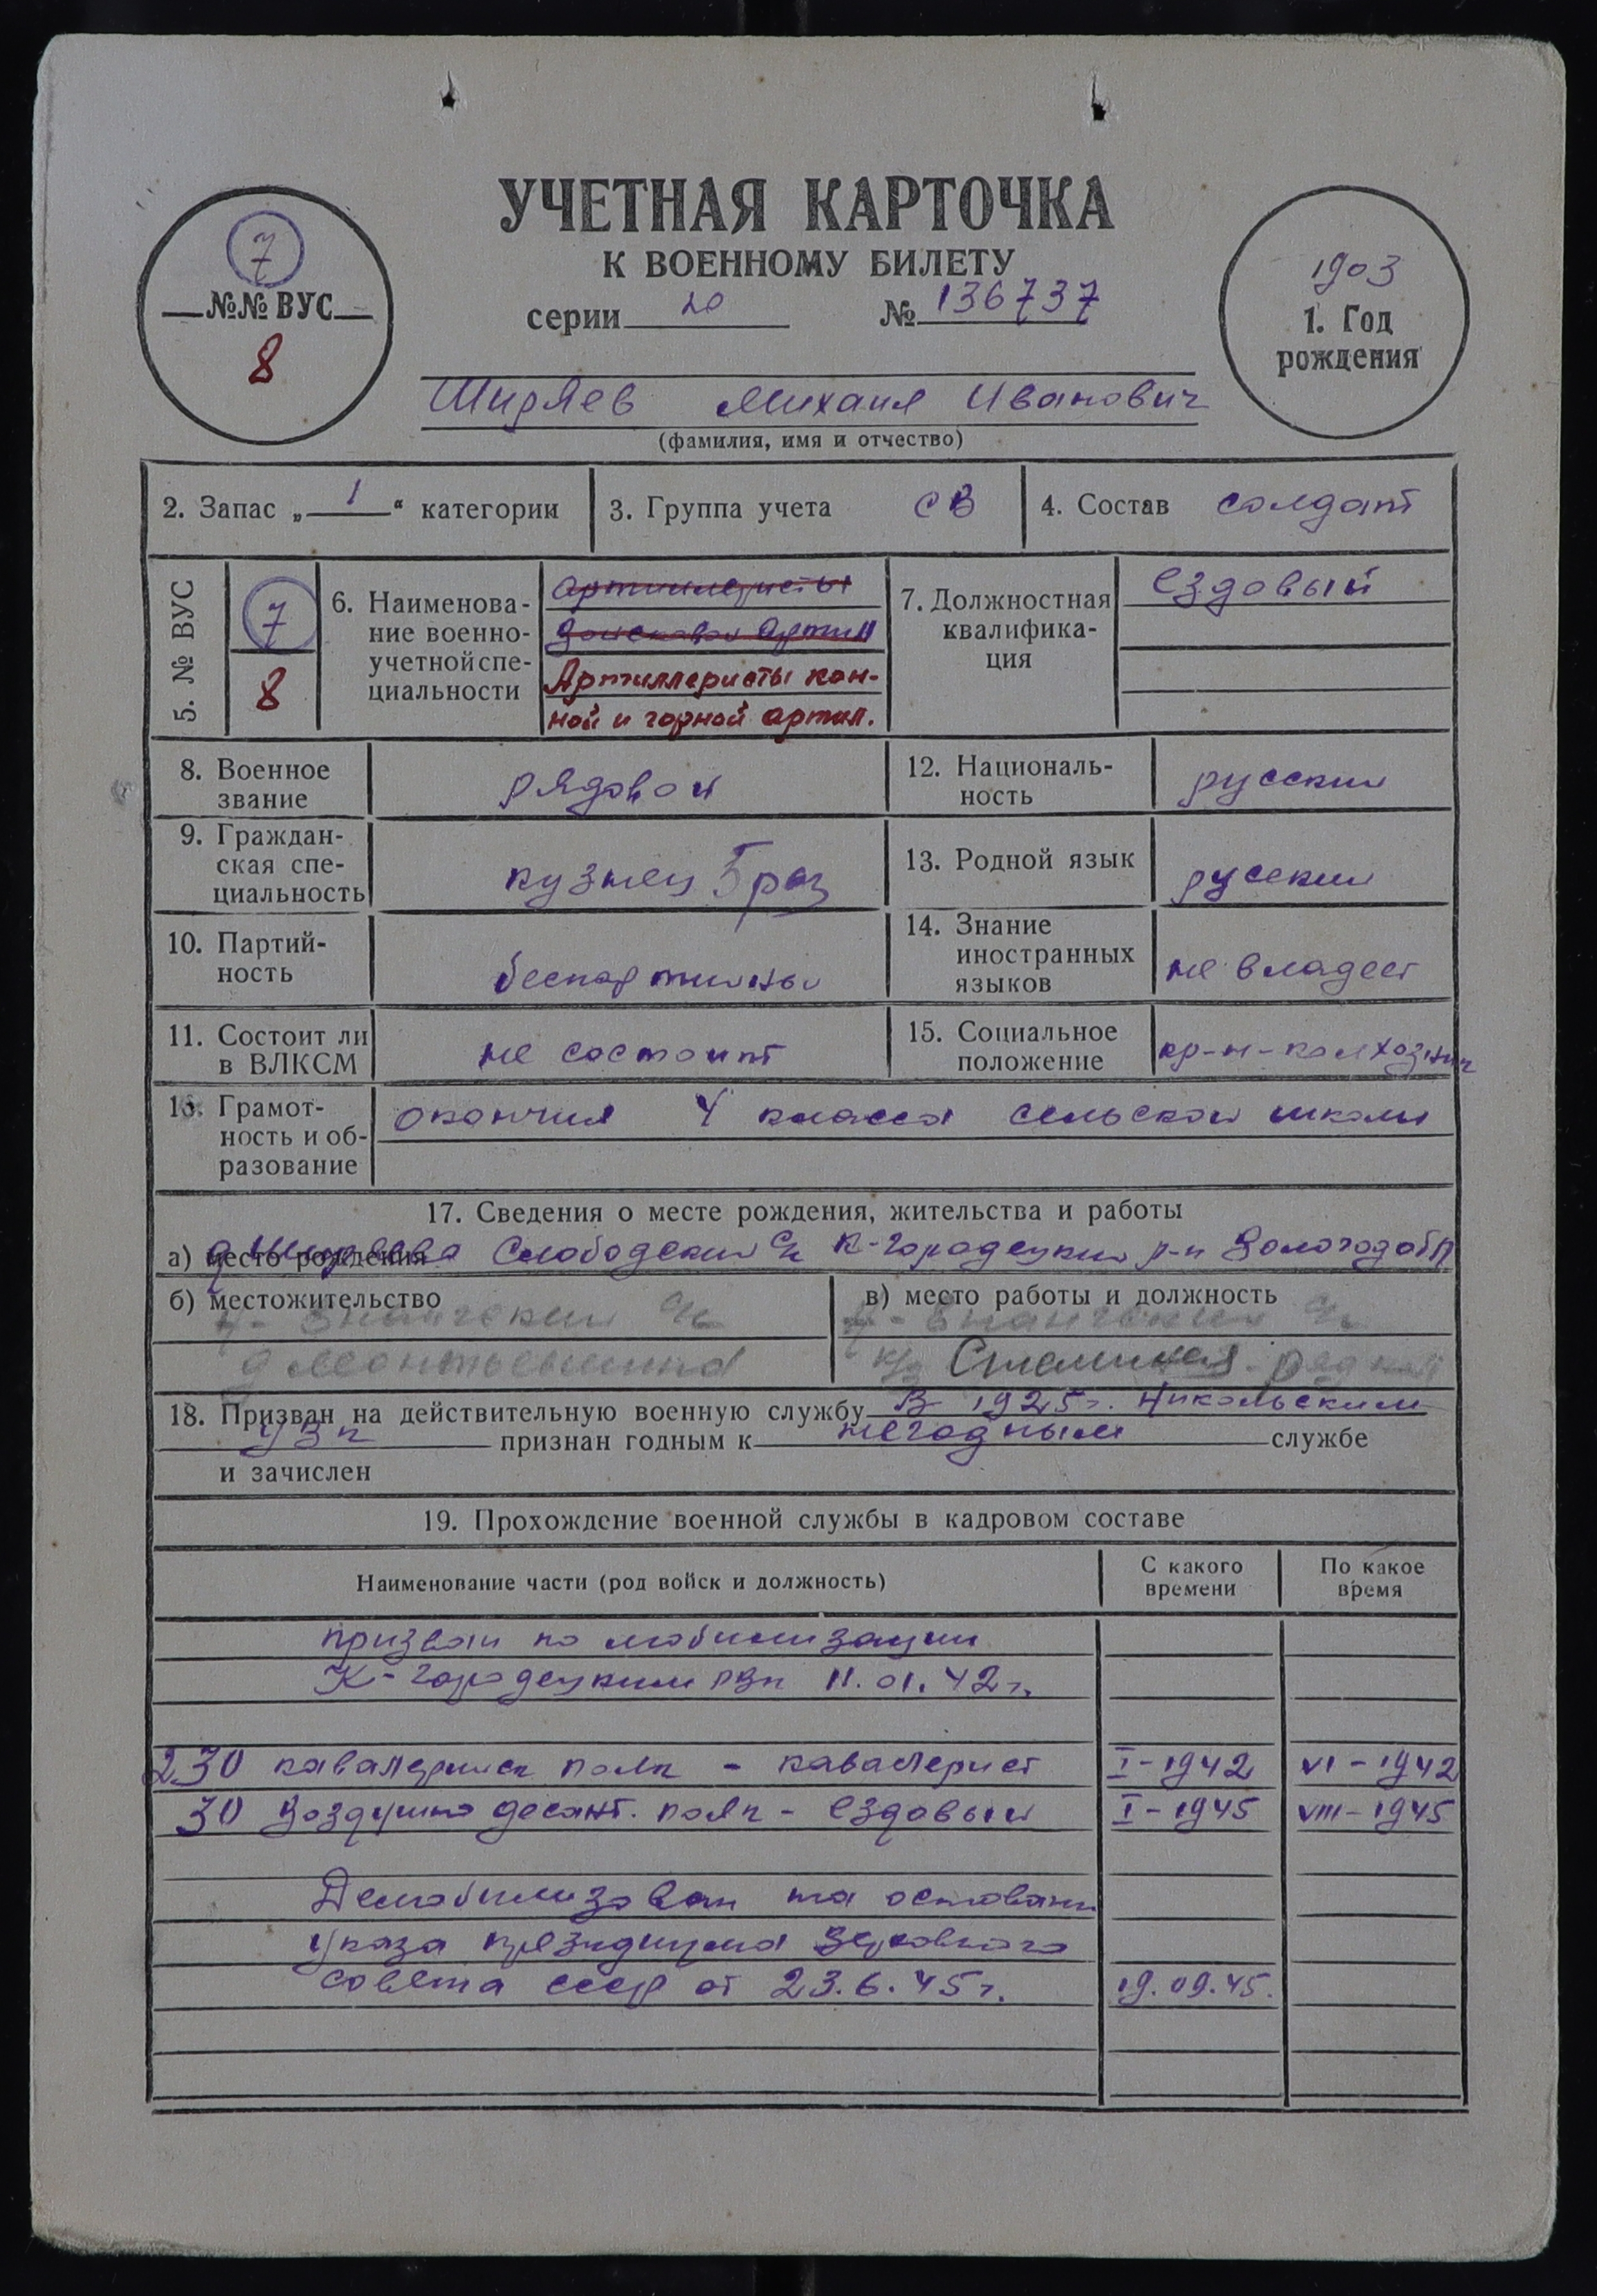 УЧЕТНАЯ КАРТОЧКА
К ВОЕННОМУ БИЛЕТУ
серии № 136737
7
№№ ВУС
8
1903
1. Год
рождения
Ширяев Михаил Иванович
(фамилия, имя и отчество)
2. Запас „ 1 “ категории
3. Группа учета СВ
4. Состав солдат
5. № ВУС
7
8
6. Наименова-
ние военно-
учетной спе-
циальности
Артиллеристы
Артиллеристы кон-
ной и горной артил.
7. Должностная
квалифика-
ция
Ездовый
8. Военное
звание
рядовой
12. Националь-
ность
русский
9. Граждан-
ская спе-
циальность
кузнец 5 раз
13. Родной язык
русский
10. Партий-
ность
беспартийный
14. Знание
иностранных
языков
не владеет
11. Состоит ли
в ВЛКСМ
не состоит
15. Социальное
положение
кр-н-колхозник
16. Грамот-
ность и об-
разование
окончил 4 класса сельской школы
17. Сведения о месте рождения, жительства и работы
а) место рождения д Ширяева Слободский с/с К-Городецкий р-н Вологод обл
б) местожительство
с/с
в) место работы и должность
с/с
к/з Сталина
18. Призван на действительную военную службу В 1925г. Никольским
УВК признан годным к негодным службе
и зачислен
19. Прохождение военной службы в кадровом составе
Наименование части (род войск и должность)
С какого
времени
По какое
время
призван по мобилизации
К-Городецким РВК 11.01.42г.
230 кавалерийск полк - кавалерист I-1942 VI-1942
30 Воздушно десант. полк - Ездовый I-1945 VIII-1945
Демобилизован на основани
указа президиума Верховного
совета СССР от 23.6.45г. 19.09.45.